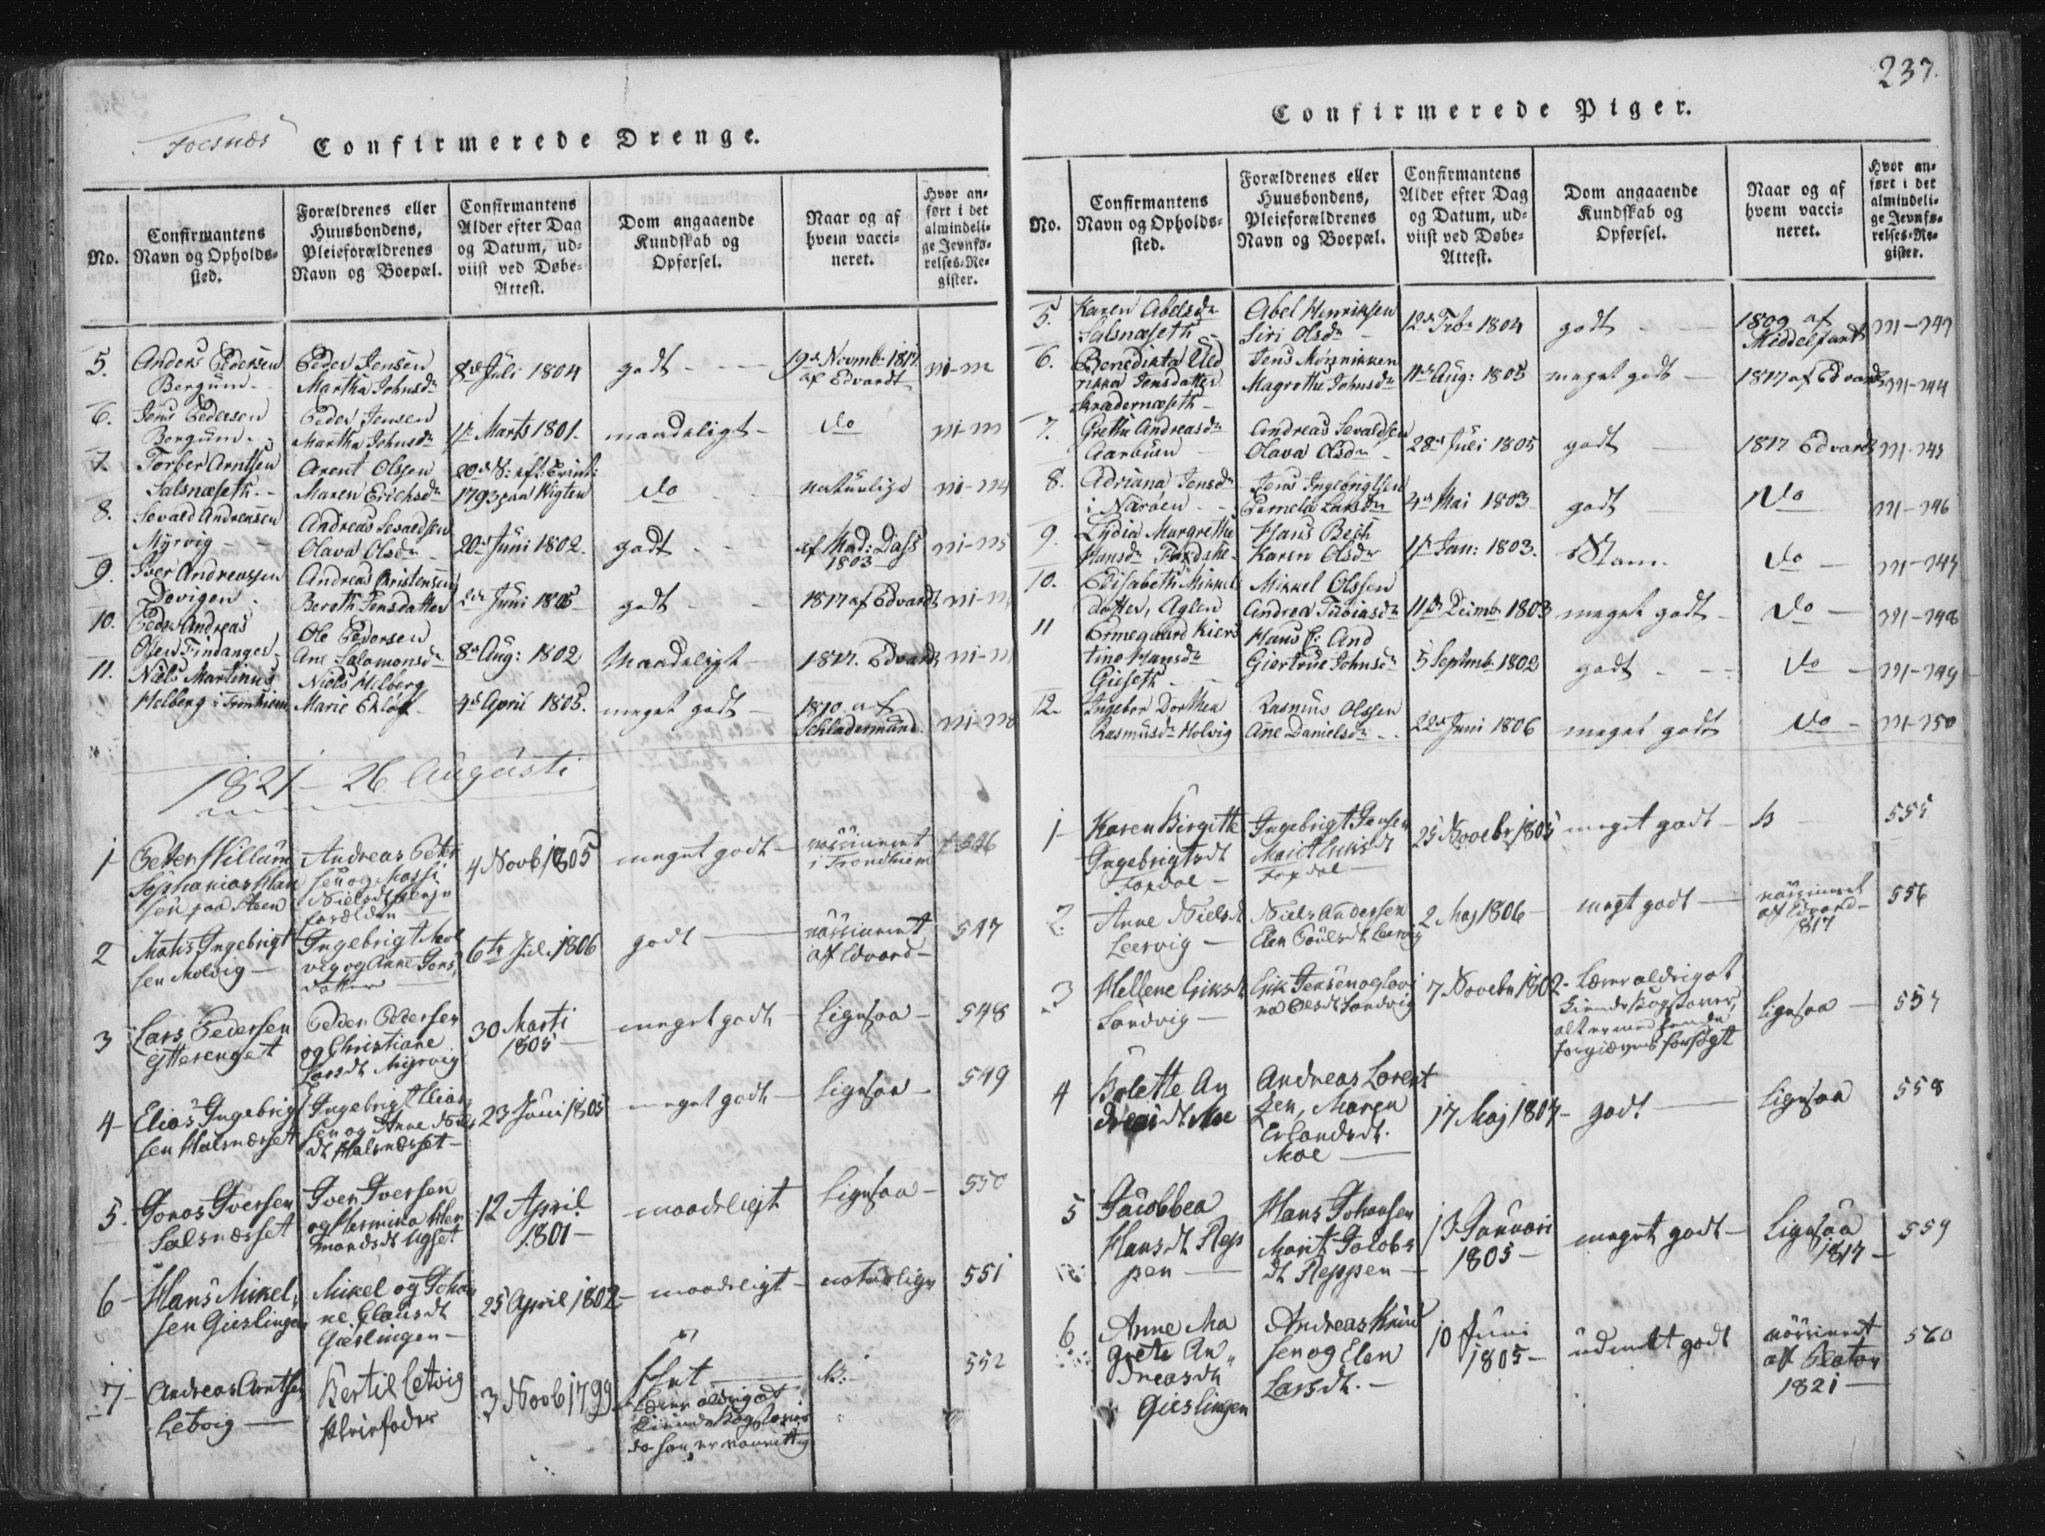 Foesnæs
Confirmerede Drenge.
No.
Confirmantens
Navn og Opholds-
sted.
Forældrenes eller
Huusbondens,
Pleieforældrenes
Navn og Boepæl.
Confirmantens
Alder efter Dag
og Datum, ud-
viist ved Døbe-
Attest.
Dom angaaende
Kundskab og
Opførsel.
Naar og af
hvem vacci-
neret.
Hvor an-
ført i det
almindeli-
ge Jevnfø-
relses-Re-
gister.
5.
Anders Pedersen
Bergum
Peder Jensen
Martha Johnsdr
8de Juli 1804
godt
19de Novmb: 1817
af Edvardt
6.
Jens Pedersen
Bergum
Peder Jensen
Martha Johnsdr
Marts 1801.
maadeligt
do
7.
Torber Arntsen
Salsnæseth
Arent Olsson
Maren Erichsdr
1793 paa Vigten
do
naturlige
8.
Sevald Andreasen
Myrvig
Andreas Sevaldsen
Olava Olsdr
20de Juni 1802.
godt
af Mad: Dass
1803
9.
Iver Andreassen
Devigen
Andreas Christensen
Bereth Jensdatter
Juni 1805
godt
1817 af Edvardt
10.
Peder Andreas
Olsen Findanger
Ole Pedersen
Ane Salomonsdr
8de Aug: 1802
Maadeligt
1817. Edvardt
11.
Niels Martinus
Helberg i Tronhiem
Niels Helberg
Marie Eklöf
4de April 1805.
meget godt
1810 af
Schladermund
1821 - 26 Augusti
1
Peter Willum
Sophanias Han
sen paa Steen
Andreas Peter
sen og Massi
Nielsdt
forældre
4 Novb 1805
meget godt
vassineret
i Trondhiem
546
2
Matis Ingebrigt
sen Molvig
Ingebrigt Mol
vig og Anne Jons
datter
6te Juli 1806
godt
vassineret
af Edvard
547
3
Lars Pedersen
Ytterenget
Peder Pedersen
og Christiane
Larsdt Myrvig
30 Marti
1805
meget godt
Ligesaa
548
4
Elias Ingebrigt
sen Halsnæsset
Ingebrigt Elias
sen og Anne Niels
dt Halsnæsset
23 Juni 1805
meget godt
Ligesaa
549
5.
Jonas Iversen
Salsnæsset
Iver Iversen
og Hermina Her
mandsdt Ugset
12 April
1801
maadeligt
Ligesaa
550
6
Hans Mikel
sen Gieslingen
Mikel og Joha
ne Clausdt
Gieslingen
25 April 1802
maadeligt
naturlige
551
7
Andreas Arntsen
Letvig
Bertil Letvig
Pleiefader
3 Novb 1799
slet
Lærer aldrig at
kiende Bogstaver
da han er vanvittig
552
237.
Confirmerede Piger.
No.
Confirmantens
Navn og Opholds-
sted.
Forældrenes eller
Huusbondens,
Pleieforældrenes
Navn og Boepæl.
Confirmantens
Alder efter Dag
og Datum, ud-
viist ved Døbe-
Attest.
Dom angaaende
Kundskab og
Opførsel.
Naar og af
hvem vacci-
neret.
Hvor an-
ført i det
almindeli-
ge Jevnfø-
relses-Re-
gister.
5.
Karen Abelsdr
Salsnæseth
Abel Henriksen
Siri Olsdr
12de Febr 1804
godt
1809 af
Middelfardt
6.
Benedikta Uld
rikka Jensdatter
Jens Mörnikken
Magrethe Johnsdr
11de Aug: 1805
meget godt
1817 af Edvardt
7.
Grethe Andreasdr
Aarbuen
Andreas Sevaldsen
Olava Olsdr
28de Juli 1805
godt
1817 Edvardt
8.
Adriana Jensdr
i Nærøen
Jens Ingebrigtsen
Pernela Larsdr
4de Mai 1803
godt
do
9.
Lydia Margrethe
Hansdr
Hans Besk
Karen Olsdr
Jan: 1803.
do
10.
Elisabeth Mikkels
datter, Aglen
Mikkel Olssen
Andrea Tobiasdr
11te Decmb 1803
meget godt
do
11
Ermegaard Kiers
tine Hansdr
Gieseth
Hans P: And
Giertrue Johnsdr
5 Septmb 1802
godt
do
12.
Ingebor Dorthea
Rasmusdr Holvig
Rasmus Olssen
Ane Danielsdr
22de Juni 1806
meget godt
do
1
Karen Birgitte
Ingebrigtsdt
Fordal
Ingebrigt Jensen
Marit Eriksdt
Fordal
25 Novebr 1805
meget godt
555
2.
Anne Nielsdt
Leervig
Niels Andersen
Elen Poulsdt Leervig
2 Maj 1806
meget godt
vassineret
af Edvard
1817
556
3
Hellene Eriksdt
Sandvig
Erik Jensen og Lovi
na Olsdt Sandvig
7 Novebr 1802
Lærer aldrig at
kiende Bogstaver,
alt er med hende
forgiæves forsögt
Ligesaa
557
4
Bolette An
dreasdt Moe
Andreas Lorent
zen, Maren
Erlandsdt.
Moe
17 Maj 1804
godt
Ligesaa
558
5
Jacobbea
Hansdt Rep
pen
Hans Johansen
Marit Jakobs
dt Reppen
13 Januari
1805
meget godt
Ligesaa
1817
559
6
Anne Ma
grete An
dreasdt
Gieslingen
Andreas Knud
sen og Elen
Larsdt.
10 Juni
1805
udmerket godt
vassineret
af Platou
1821
560